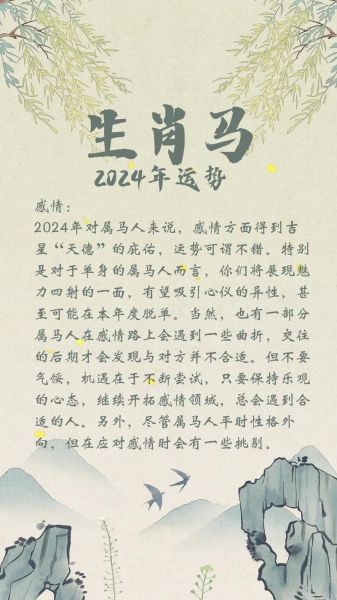 生肖马
2024年运势
感情：
2024年对属马人来说，感情方面得到吉
星“天德”的庇佑，运势可谓不错。特别
是对于单身的属马人而言，你们将展现魅
力四射的一面，有望吸引心仪的异性，甚
至可能在本年度脱单。当然，也有一部分
属马人在感情路上会遇到一些曲折，交往
的后期才会发现与对方并不合适。但不要
气馁，机遇在于不断尝试，只要保持乐观
的心态，继续开拓感情领域，总会遇到合
适的人。另外，尽管属马人平时性格外
向，但在应对感情时会有一些挑剔。